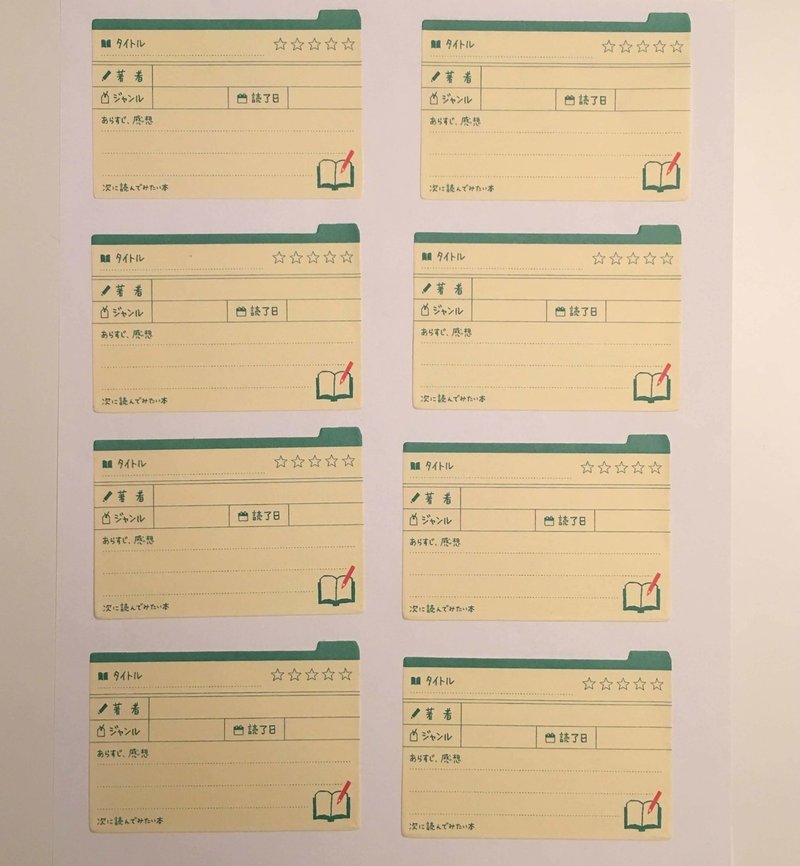 タイトル ☆☆☆☆☆
著者
ジャンル 読了日
あらすじ、感想
次に読んでみたい本
タイトル ☆☆☆☆☆
著者
ジャンル 読了日
あらすじ、感想
次に読んでみたい本
タイトル ☆☆☆☆☆
著者
ジャンル 読了日
あらすじ、感想
次に読んでみたい本
タイトル ☆☆☆☆☆
著者
ジャンル 読了日
あらすじ、感想
次に読んでみたい本
タイトル ☆☆☆☆☆
著者
ジャンル 読了日
あらすじ、感想
次に読んでみたい本
タイトル ☆☆☆☆☆
著者
ジャンル 読了日
あらすじ、感想
次に読んでみたい本
タイトル ☆☆☆☆☆
著者
ジャンル 読了日
あらすじ、感想
次に読んでみたい本
タイトル ☆☆☆☆☆
著者
ジャンル 読了日
あらすじ、感想
次に読んでみたい本